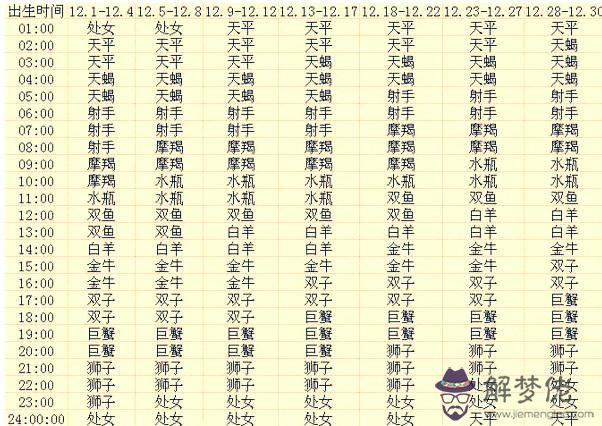 出生时间 12.1-12.4 12.5-12.8 12.9-12.12 12.13-12.17 12.18-12.22 12.23-12.27 12.28-12.30
01:00 处女 处女 天平 天平 天平 天平 天平
02:00 天平 天平 天平 天平 天平 天平 天蝎
03:00 天平 天平 天平 天蝎 天蝎 天蝎 天蝎
04:00 天蝎 天蝎 天蝎 天蝎 天蝎 天蝎 天蝎
05:00 天蝎 天蝎 天蝎 天蝎 射手 射手 射手
06:00 射手 射手 射手 射手 射手 射手 射手
07:00 射手 射手 射手 射手 摩羯 摩羯 摩羯
08:00 射手 摩羯 摩羯 摩羯 摩羯 摩羯 摩羯
09:00 摩羯 摩羯 摩羯 摩羯 摩羯 水瓶 水瓶
10:00 摩羯 水瓶 水瓶 水瓶 水瓶 水瓶 水瓶
11:00 水瓶 水瓶 水瓶 水瓶 双鱼 双鱼 双鱼
12:00 双鱼 双鱼 双鱼 双鱼 双鱼 白羊 白羊
13:00 双鱼 双鱼 白羊 白羊 白羊 白羊 白羊
14:00 白羊 白羊 白羊 白羊 金牛 金牛 金牛
15:00 金牛 金牛 金牛 金牛 金牛 金牛 双子
16:00 金牛 金牛 金牛 双子 双子 双子 双子
17:00 双子 双子 双子 双子 双子 双子 巨蟹
18:00 双子 双子 双子 巨蟹 巨蟹 巨蟹 巨蟹
19:00 巨蟹 巨蟹 巨蟹 巨蟹 巨蟹 巨蟹 巨蟹
20:00 巨蟹 巨蟹 巨蟹 巨蟹 狮子 狮子 狮子
21:00 狮子 狮子 狮子 狮子 狮子 狮子
22:00 狮子 狮子 狮子 狮子 狮子 处女
23:00 狮子 处女 处女 处女 处女 处女
24:00:00 处女 处女 处女 处女 天平 天平
解梦佬
www.jiemenglao.com